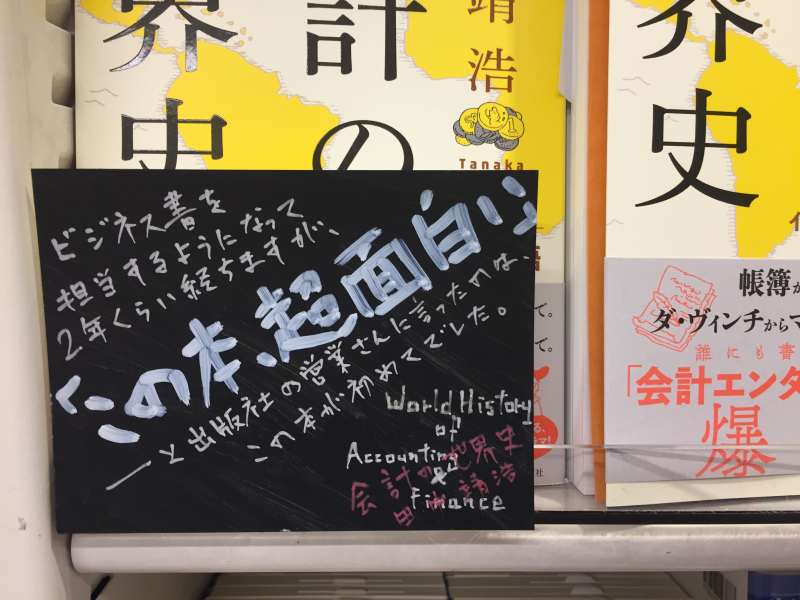 界史
計の
靖浩
Tanaka
ビジネス書を
担当するようになって
2年くらい経ちますが、
"この本、超面白い"
と出版社の営業さんに言ったのは、
この本が初めてでした。
World History
of
Accounting
&
Finance
会計の世界史
田中靖浩
て。
て。
界史
帳簿
ダ・ヴィンチからマ
誰にも書
「会計エンタ
爆